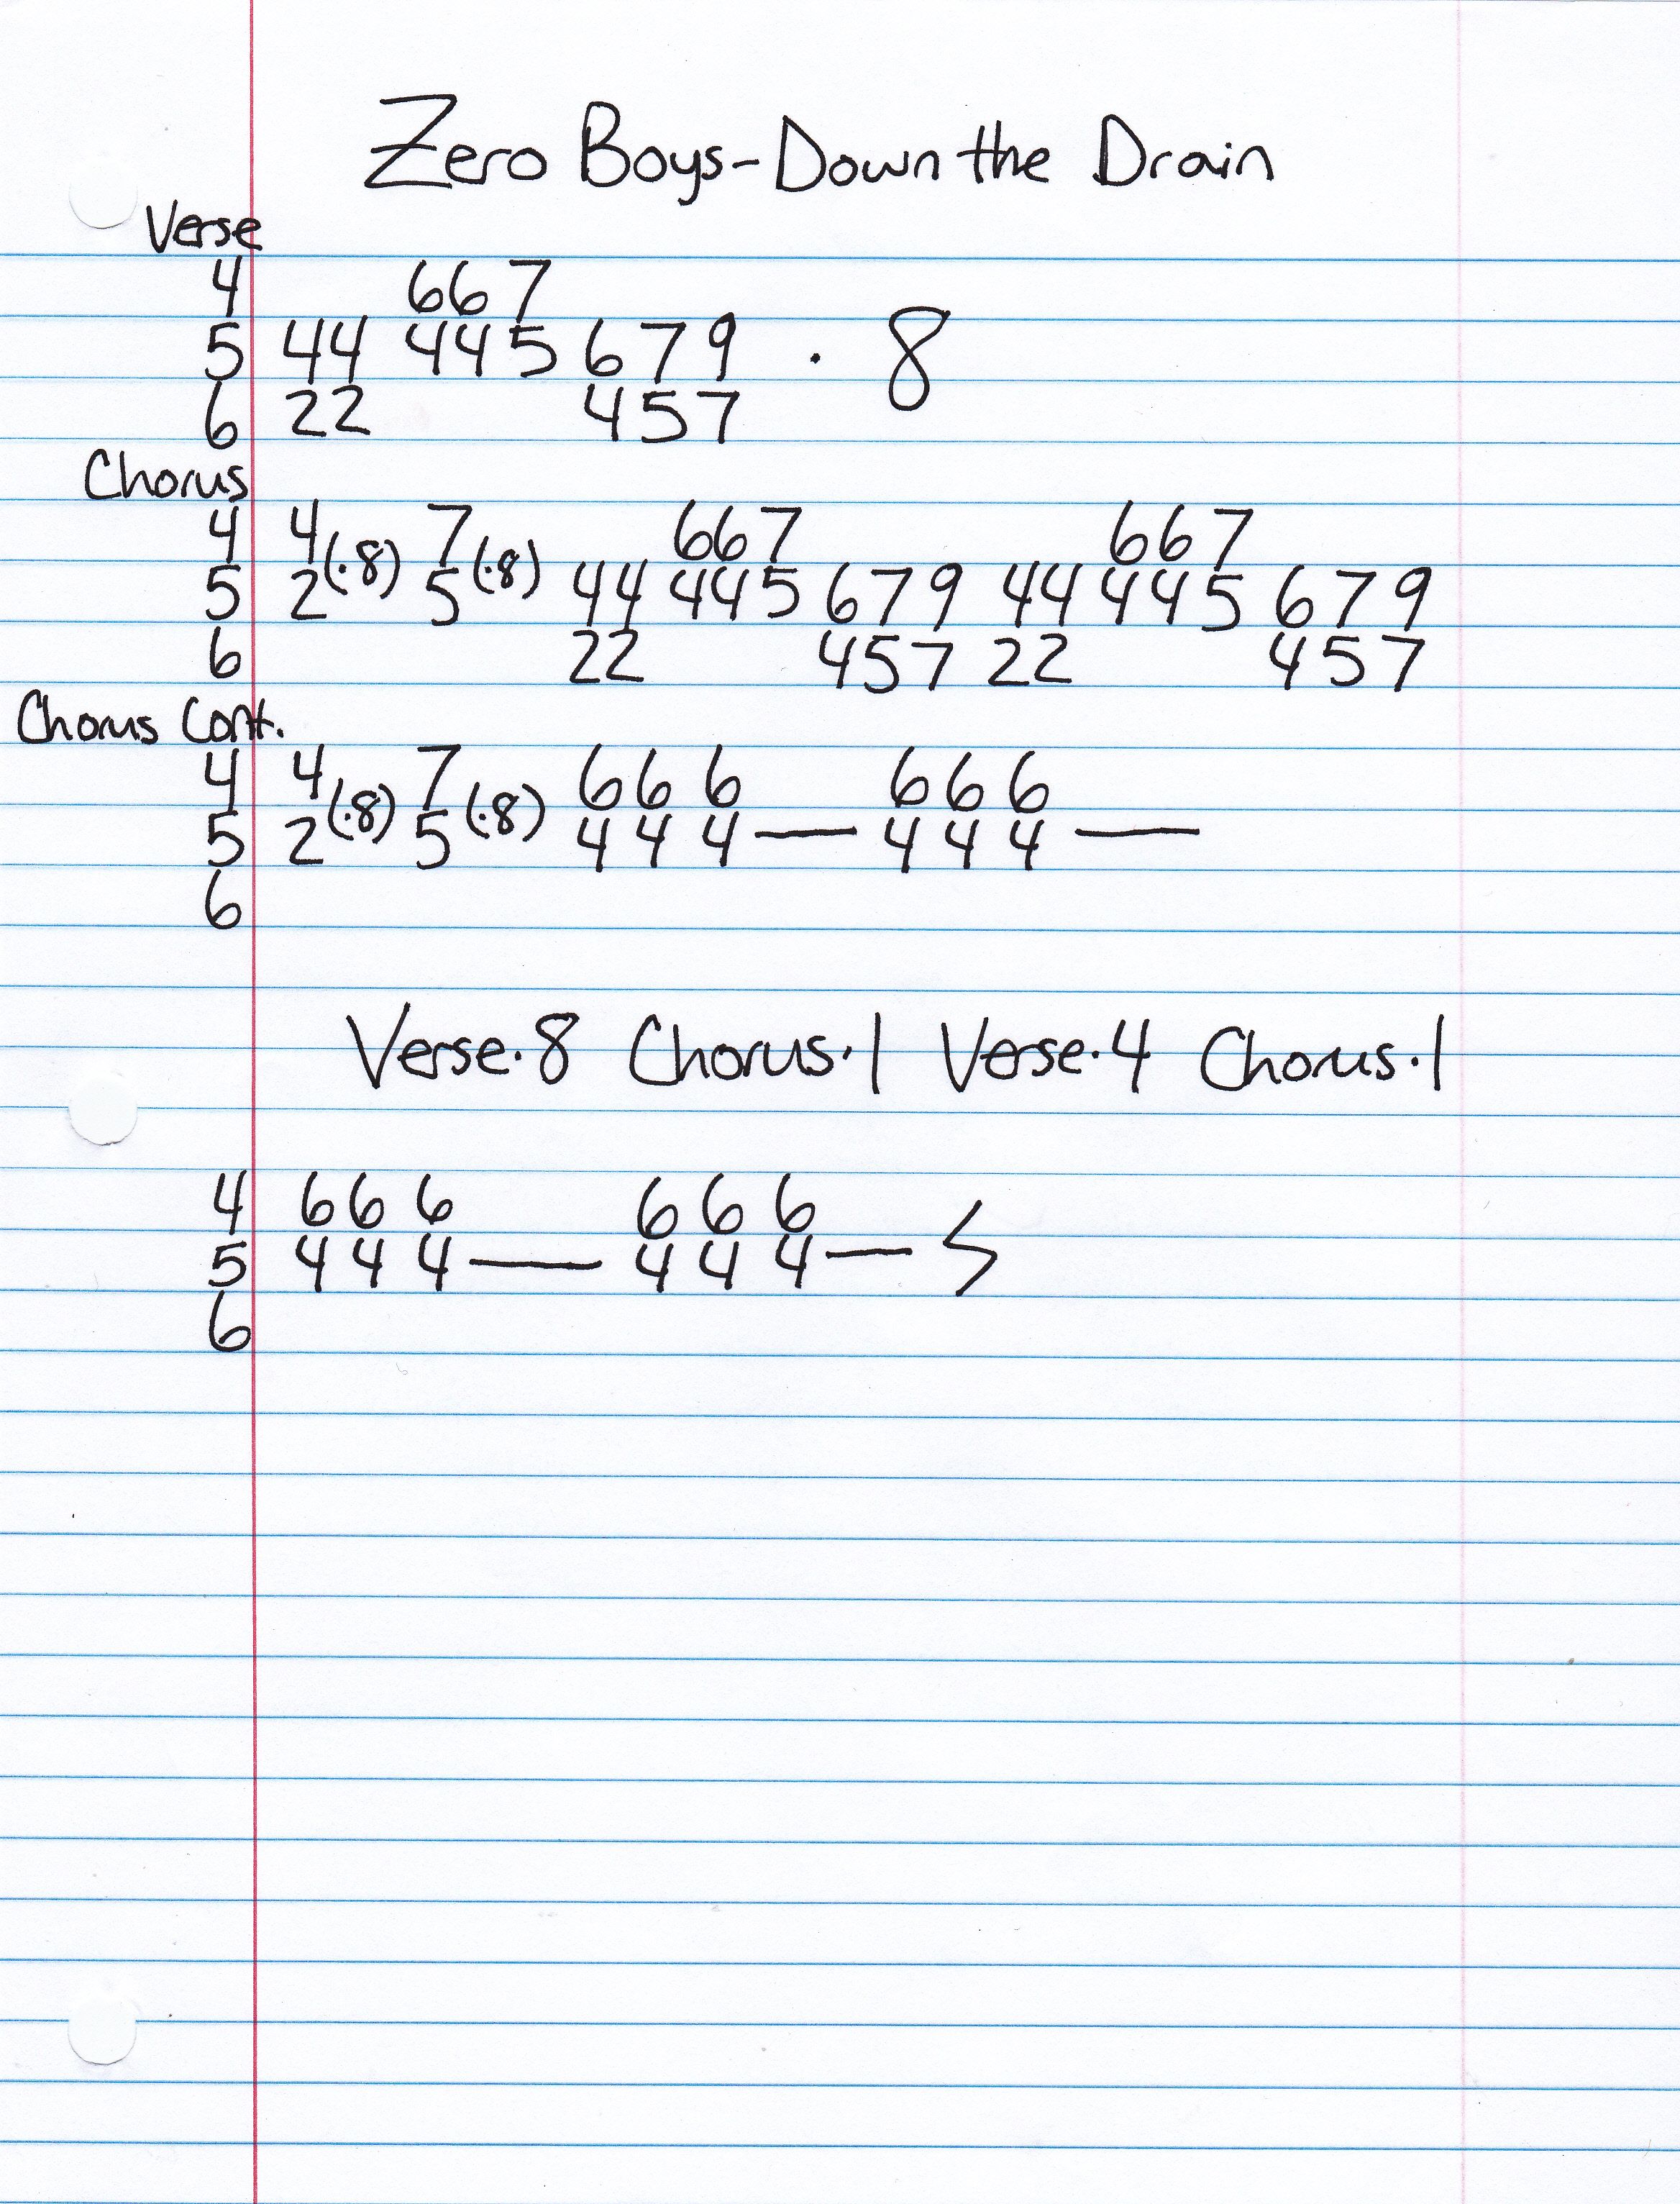 Zero Boys-Down the Drain
Verse
4 667
5 44 445 679 · 8
6 22 457
Chorus
4 4 7 667 667
5 2(·8) 5(·8) 44 445 679 44 445 679
6 22 457 22 457
Chorus Cont.
4 4 7 6 6 6 6 6 6
5 2(·8) 5(·8) 4 4 4 — 4 4 4 —
6
Verse·8 Chorus·1 Verse·4 Chorus·1
4 6 6 6 6 6 6
5 4 4 4 — 4 4 4 —
6